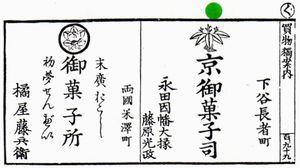 く
買物獨案内
百九十九
下谷長者町
京御菓子司
永田因幡大掾
藤原光政
両國米澤町
末廣おこし
御菓子所
初夢せんべい
橘屋藤兵衛